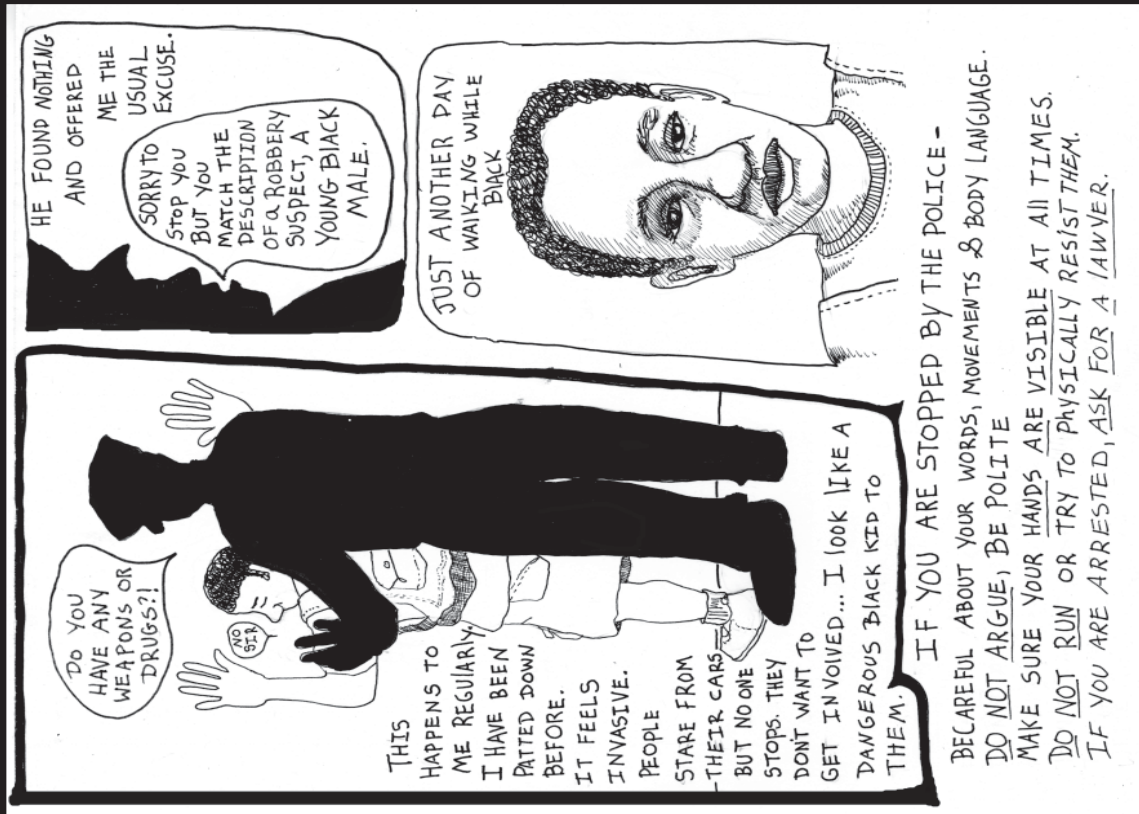 DO YOU
HAVE ANY
WEAPONS OR
DRUGS?!
NO
SIR
THIS
HAPPENS TO
ME REGULARLY.
I HAVE BEEN
PATTED DOWN
BEFORE.
IT FEELS
INVASIVE.
PEOPLE
STARE FROM
THEIR CARS
BUT NO ONE
STOPS. THEY
DON'T WANT TO
GET INVOLVED... I LOOK LIKE A
DANGEROUS BLACK KID TO
THEM.
HE FOUND NOTHING
AND OFFERED
ME THE
USUAL
EXCUSE.
SORRY TO
STOP YOU
BUT YOU
MATCH THE
DESCRIPTION
OF a ROBBERY
SUSPECT, A
YOUNG BLACK
MALE.
JUST ANOTHER DAY
OF WALKING WHILE
BLACK
IF YOU ARE STOPPED BY THE POLICE-
BECAREFUL ABOUT YOUR WORDS, MOVEMENTS & BODY LANGUAGE.
DO NOT ARGUE, BE POLITE
MAKE SURE YOUR HANDS ARE VISIBLE AT ALL TIMES.
DO NOT RUN OR TRY TO PHYSICALLY RESIST THEM.
IF YOU ARE ARRESTED, ASK FOR A LAWYER.